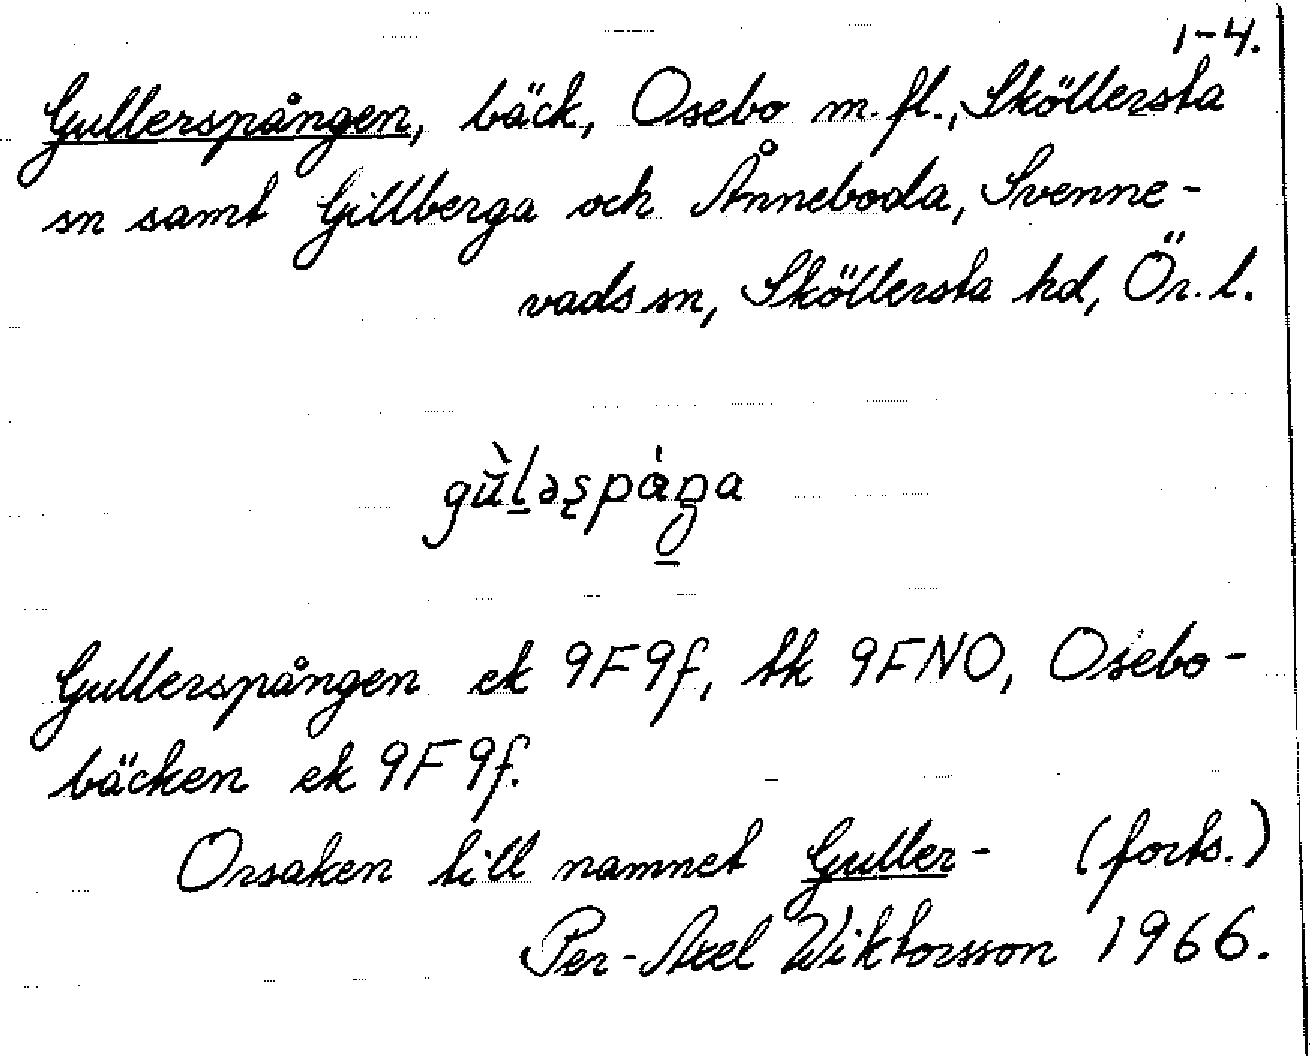 1-4.
Gullerspången, bäck, Osebo m. fl., Sköllersta
sn samt Gillberga och Ånneboda, Svenne-
vads sn, Sköllersta hd, Ör. l.
Gullerspången ek 9F9f, tk 9FNO, Osebo-
bäcken ek 9F9f.
Orsaken till namnet Guller- (forts.)
Per-Axel Wiktorsson 1966.